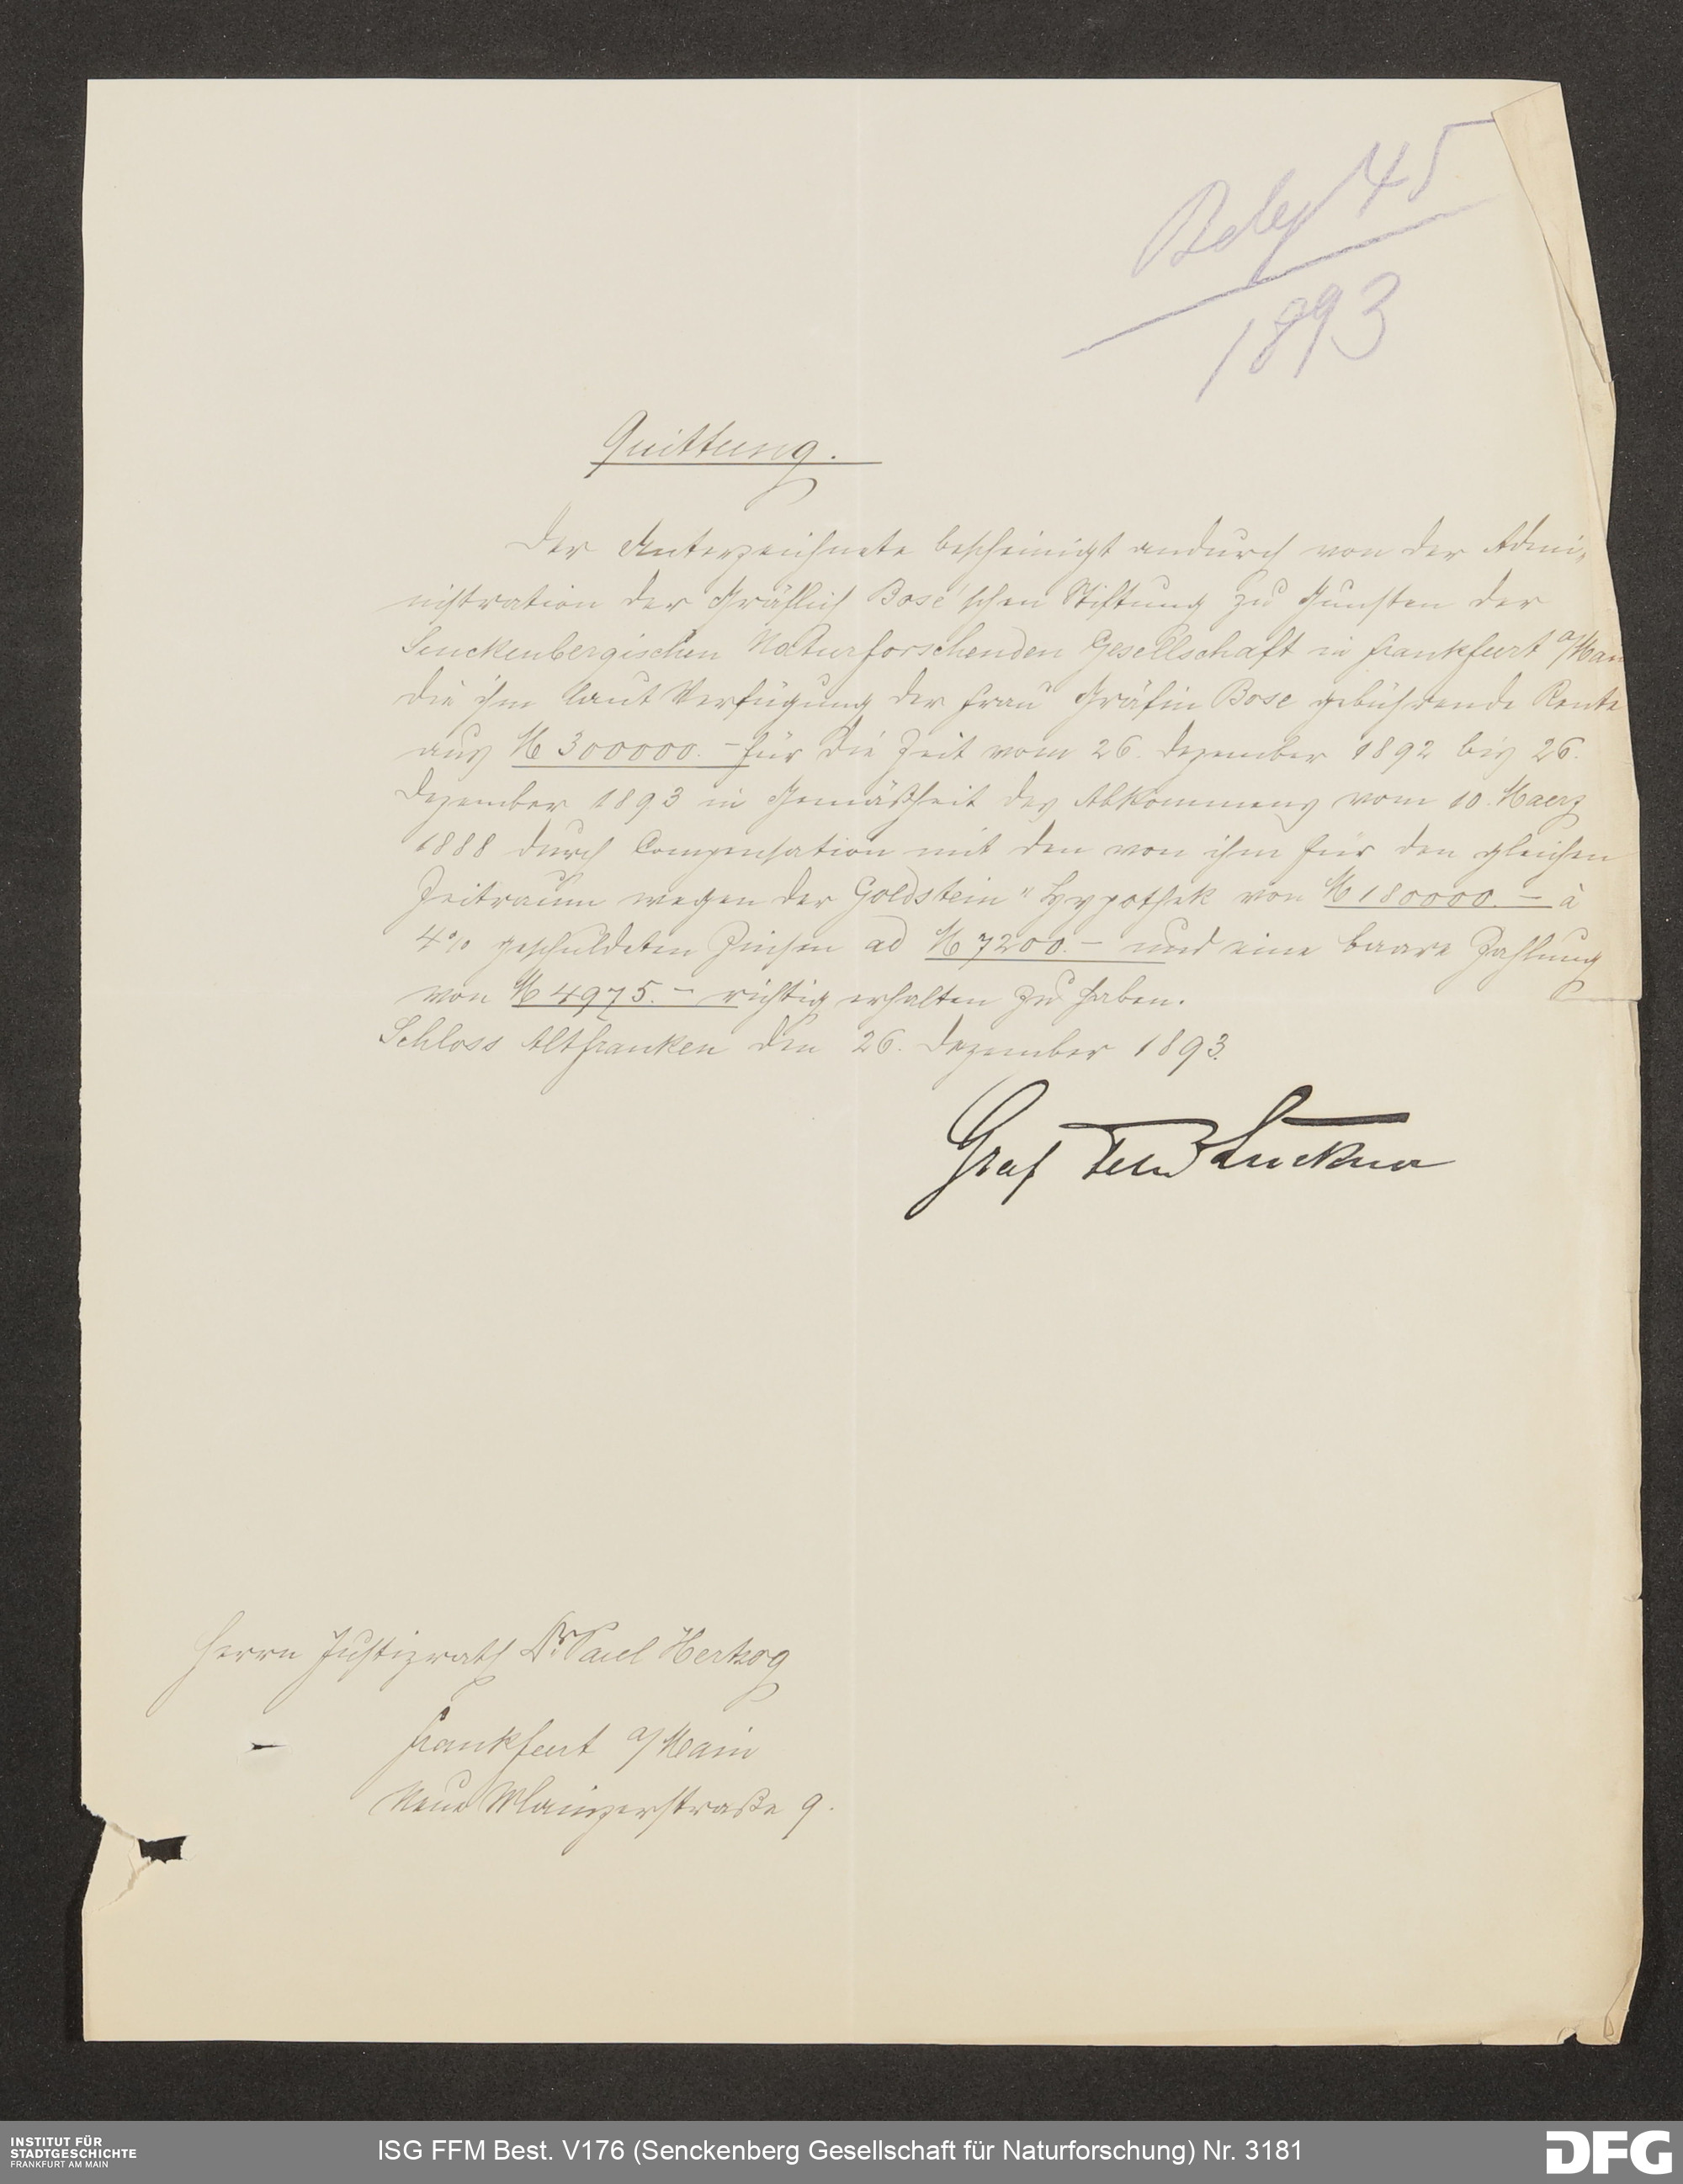 Beleg 45
1893
Quittung.
Der Unterzeichnete bescheinigt andurch von der Admi-
nistration der Gräflich Bose'schen Stiftung zu Gunsten der
Senckenbergischen Naturforschenden Gesellschaft in Frankfurt a/Main
die ihm laut Verfügung der Frau Gräfin Bose gebührende Rente
aus M 300000.– für die Zeit vom 26. Dezember 1892 bis 26.
Dezember 1893 in Gemäßheit des Abkommens vom 10. Maerz
1888 durch Compensation mit den von ihm für den gleichen
Zeitraum wegen der Goldstein" Hypothek von M 180000.– à
4% geschuldeten Zinsen ad M 7200.– und eine baare Zahlung
von M 4975.– richtig erhalten zu haben.
Schloss Altfranken den 26. Dezember 1893.
Graf Felix Luckner
Herrn Justizrath Dr. Paul Hertzog
Frankfurt a/Main
Neue Mainzerstraße 9.
INSTITUT FÜR
STADTGESCHICHTE
FRANKFURT AM MAIN
ISG FFM Best. V176 (Senckenberg Gesellschaft für Naturforschung) Nr. 3181
DFG